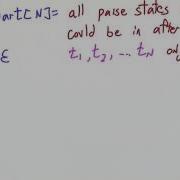 art[N]= all parse states
could be in after
ε t₁, t₂, ... tN on